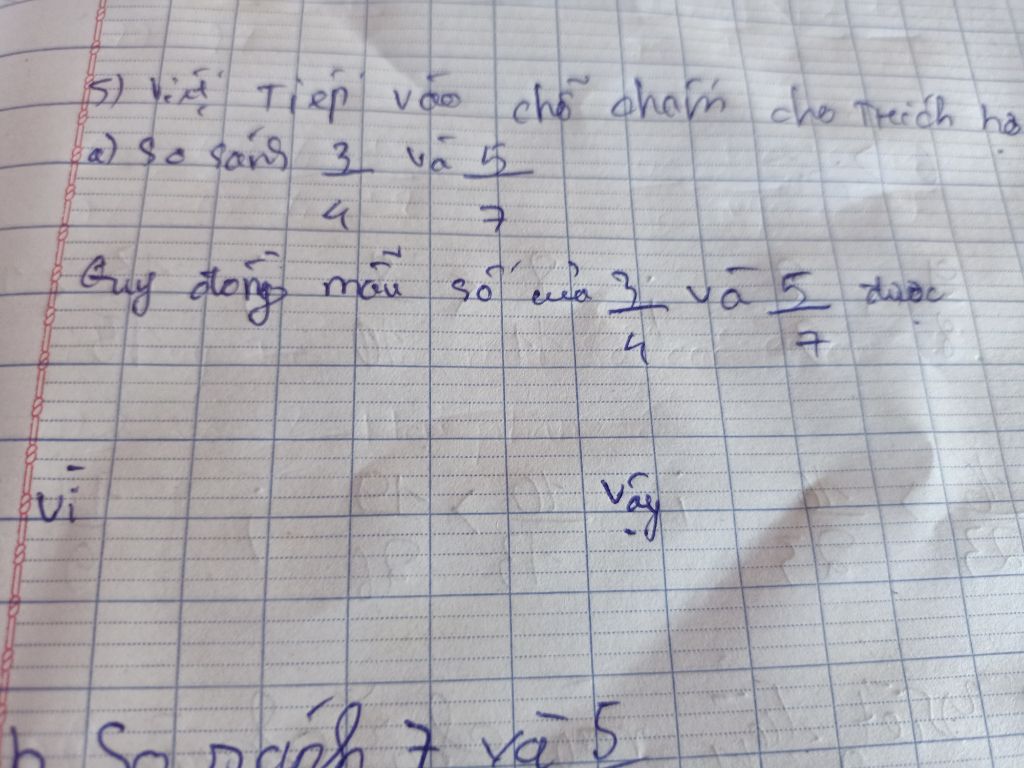 5) Viết Tiếp vào chỗ chấm cho Thích hợ
a) So sánh 3/4 và 5/7
Quy đồng mẫu số của 3/4 và 5/7 được
Vì Vậy
b So sánh 7 và 5